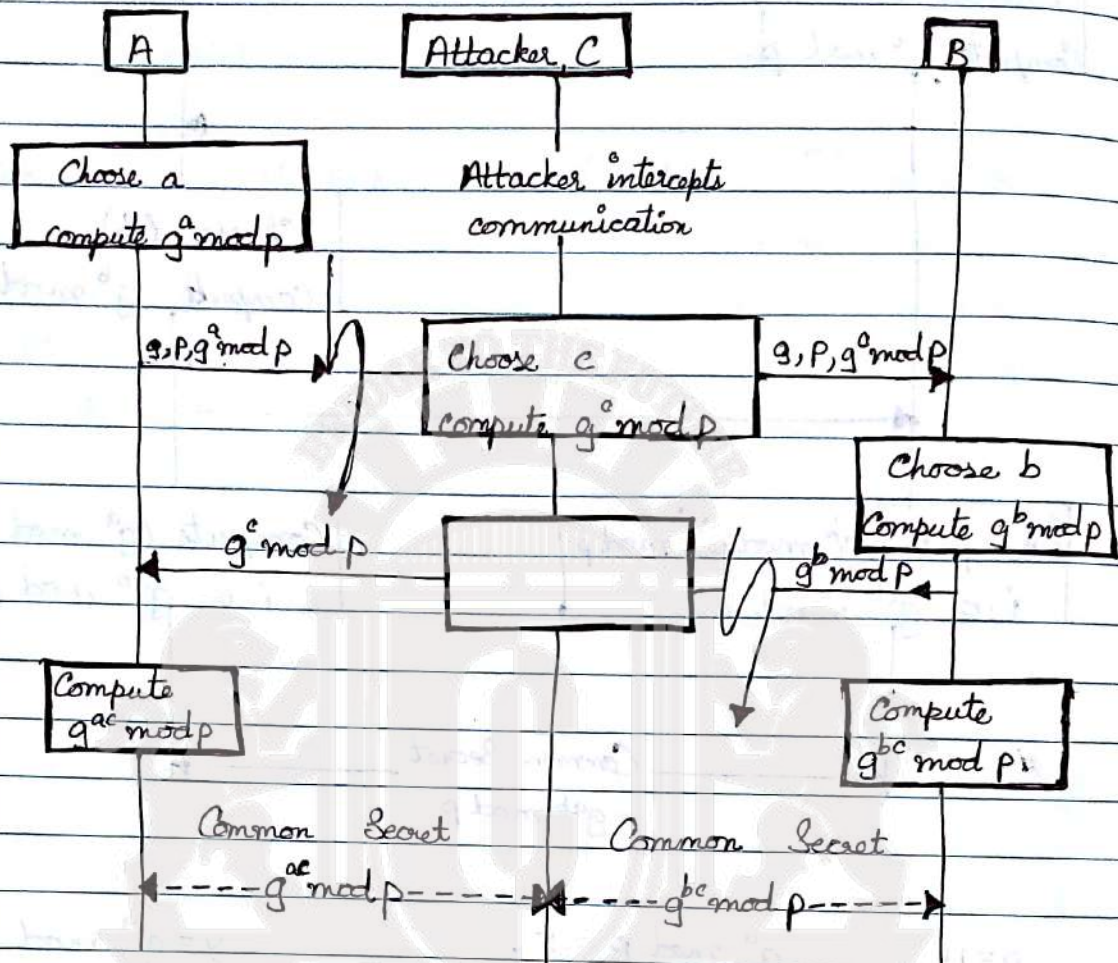 A
Attacker, C
B
Choose a
compute g^a mod p
Attacker intercepts
communication
g, p, g^a mod p
Choose c
compute g^c mod p
g, p, g^c mod p
Choose b
Compute g^b mod p
g^c mod p
g^b mod p
Compute
g^ac mod p
Compute
g^bc mod p.
Common Secret
Common Secret
g^ac mod p
g^bc mod p